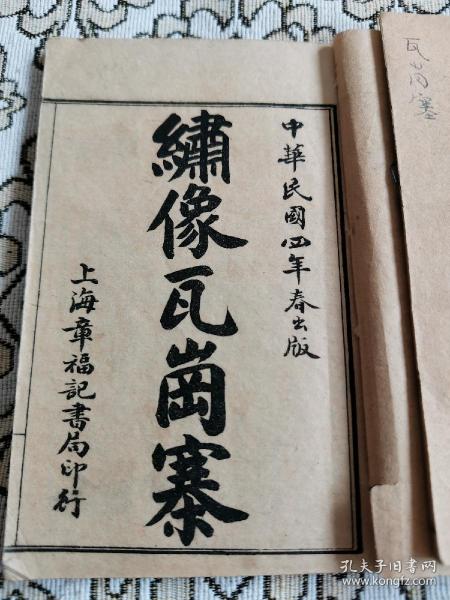 中華民國四年春出版
繡像瓦崗寨
上海章福記書局印行
瓦崗寨
孔夫子旧书网
www.kongfz.com